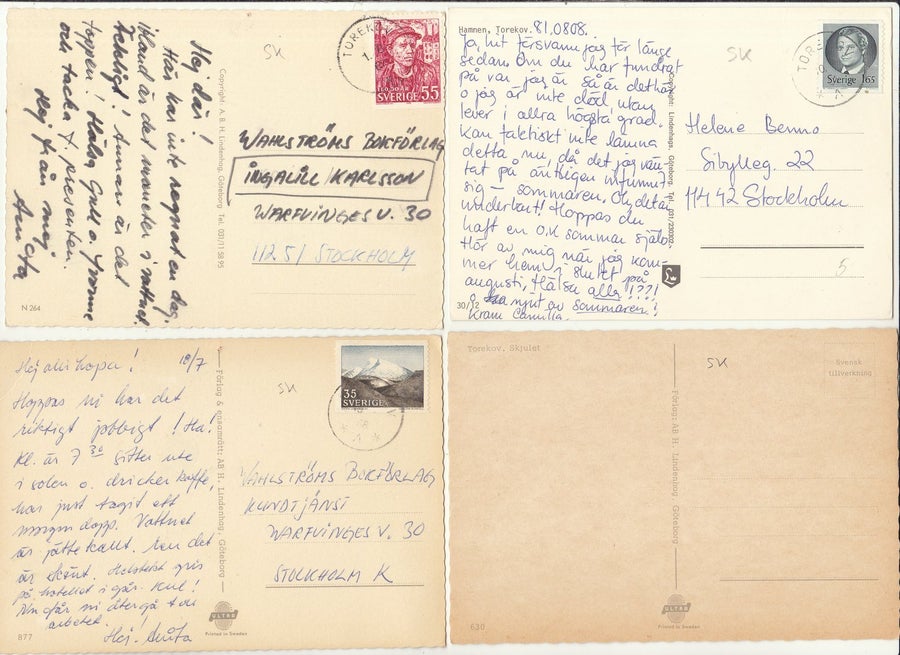 Hej där!
Här har inte regnat en dag.
ibland är det maneter i vattnet.
Annars är det
toppen! Hälsa
och tacka f. presenten.
Hej från mej
Anita
Copyright: A. B. H. Lindenhag, Göteborg Tel. 031/11 58 95
N 264
SK
TOREK
SVERIGE 55
WAHLSTRÖMS BOKFÖRLAG
INGALILL KARLSSON
WARFVINGES V. 30
112 51 STOCKHOLM
Hamnen, Torekov.
81.0808.
Ja, hit försvann jag för länge
sedan. Om du har fundrat
på var jag är så är det här
o jag är inte död utan
lever i allra högsta grad.
Kan faktiskt inte lämna
detta nu, då det jag vän-
tat på äntligen infunnit
sig – sommaren. Oh, det är
underbart! Hoppas du
haft en o.k sommar själv.
Hör av mig när jag kom-
mer hem i slutet på
augusti, Hälsa alla !??!
o njut av sommaren!
Kram Camilla.
30/12
Lindenhag, Göteborg. Tel. 031/
SK
TORE
Sverige 165
Helene Benno
Sibylleg. 22
114 42 Stockholm
5
Hej allihopa! 18/7
Hoppas ni har det
riktigt jobbigt! Ha!
Kl. är 7 30 sitter ute
i solen o. dricker kaffe,
har just tagit ett
morgondopp. Vattnet
är jättekallt. Men det
är skönt. Helstekt gris
på hotellet i går. Kul!
Nu får ni återgå till
arbetet!
Hej. Anita
877
Förlag & ensamrätt: AB H. Lindenhag, Göteborg
ULTRA
Printed in Sweden
SK
35
SVERIGE
WAHLSTRÖMS BOKFÖRLAG
KUNDTJÄNST
WARFVINGES V. 30
STOCKHOLM K
Torekov. Skjulet
SK
Svensk
tillverkning
Förlag: AB H. Lindenhag, Göteborg
ULTRA
Printed in Sweden
630